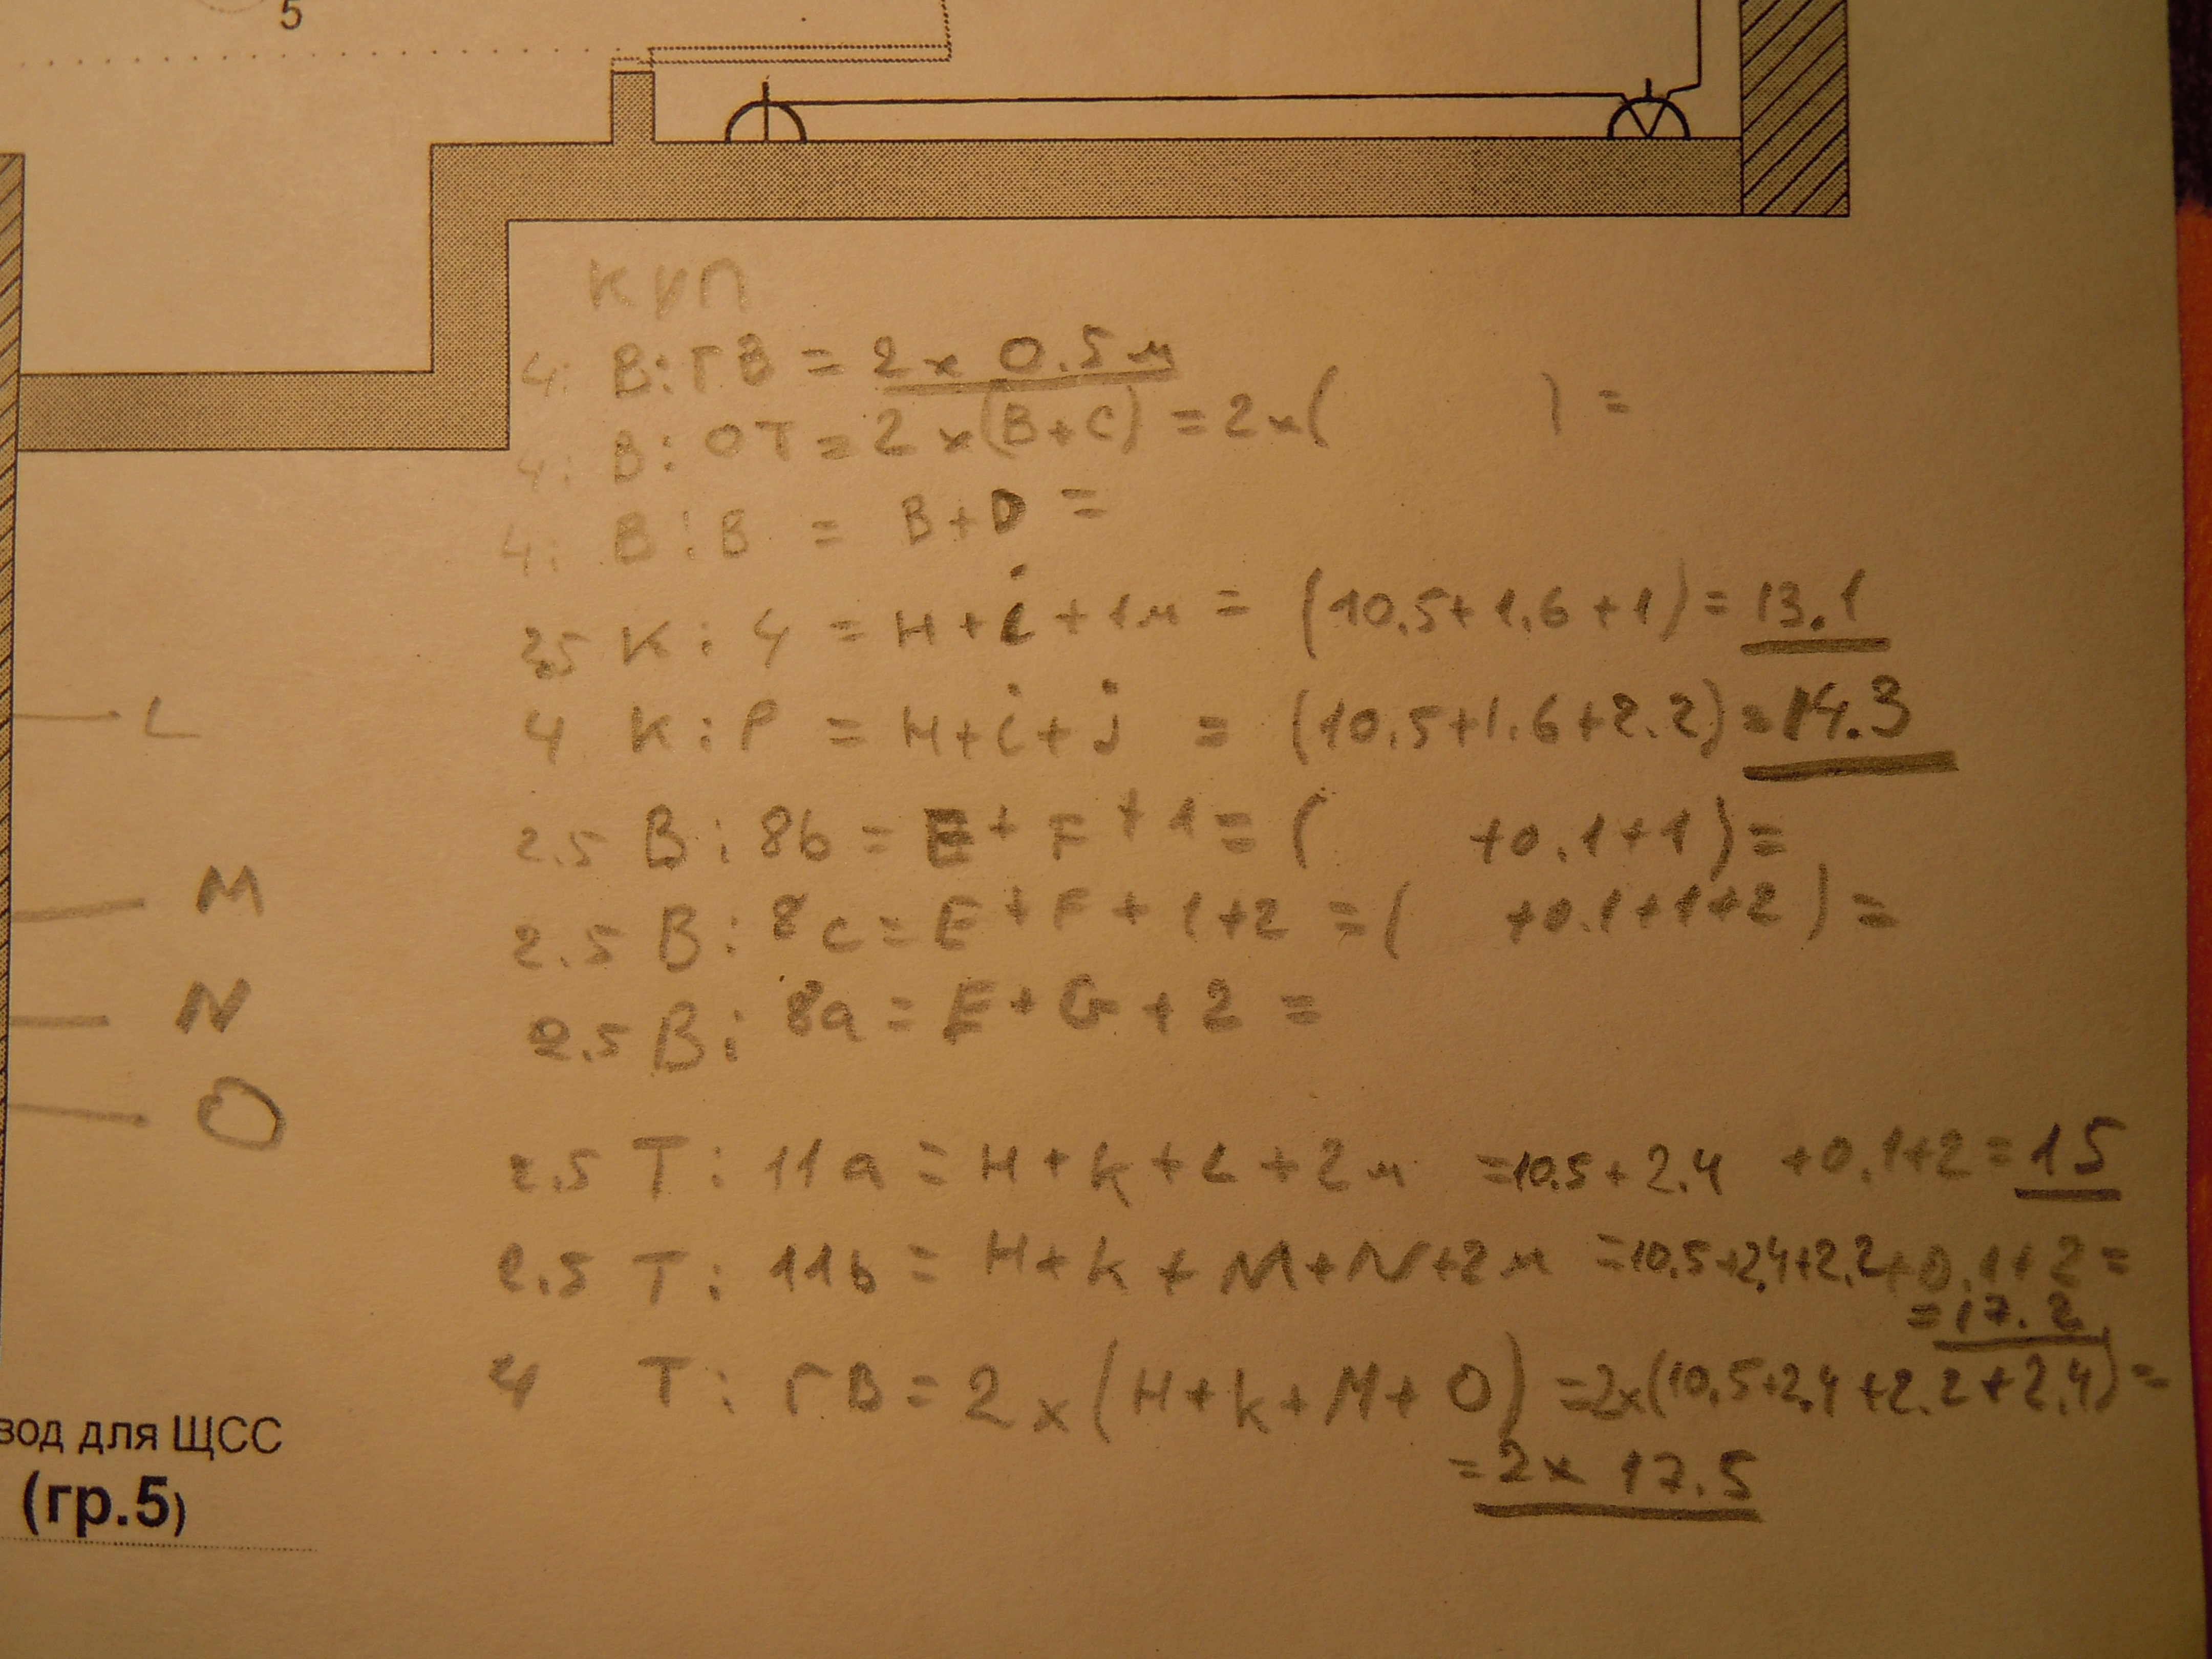 5
КУП
4: В: ГВ = 2 x 0.5 м
4: В: ОТ = 2 x (B+C) = 2x( ) =
4: В: В = B+D =
2.5 К: 4 = H+i+1м = (10.5+1.6+1) = 13.1
4 К: Р = H+i+j = (10.5+1.6+2.2) = 14.3
L
2.5 В: 8b = E+F+1 = ( +0.1+1) =
M
2.5 В: 8c = E+F+1+2 = ( +0.1+1+2) =
N
2.5 В: 8a = E+G+2 =
O
2.5 Т: 11a = H+k+L+2м =10.5+2.4 +0.1+2=15
2.5 Т: 11b = H+k+M+N+2м =10.5+2.4+2.2+0.1+2=
=17.2
4 Т: ГВ = 2x(H+k+M+O) =2x(10.5+2.4+2.2+2.4)=
=2x 17.5
вод для ЩСС
(гр.5)